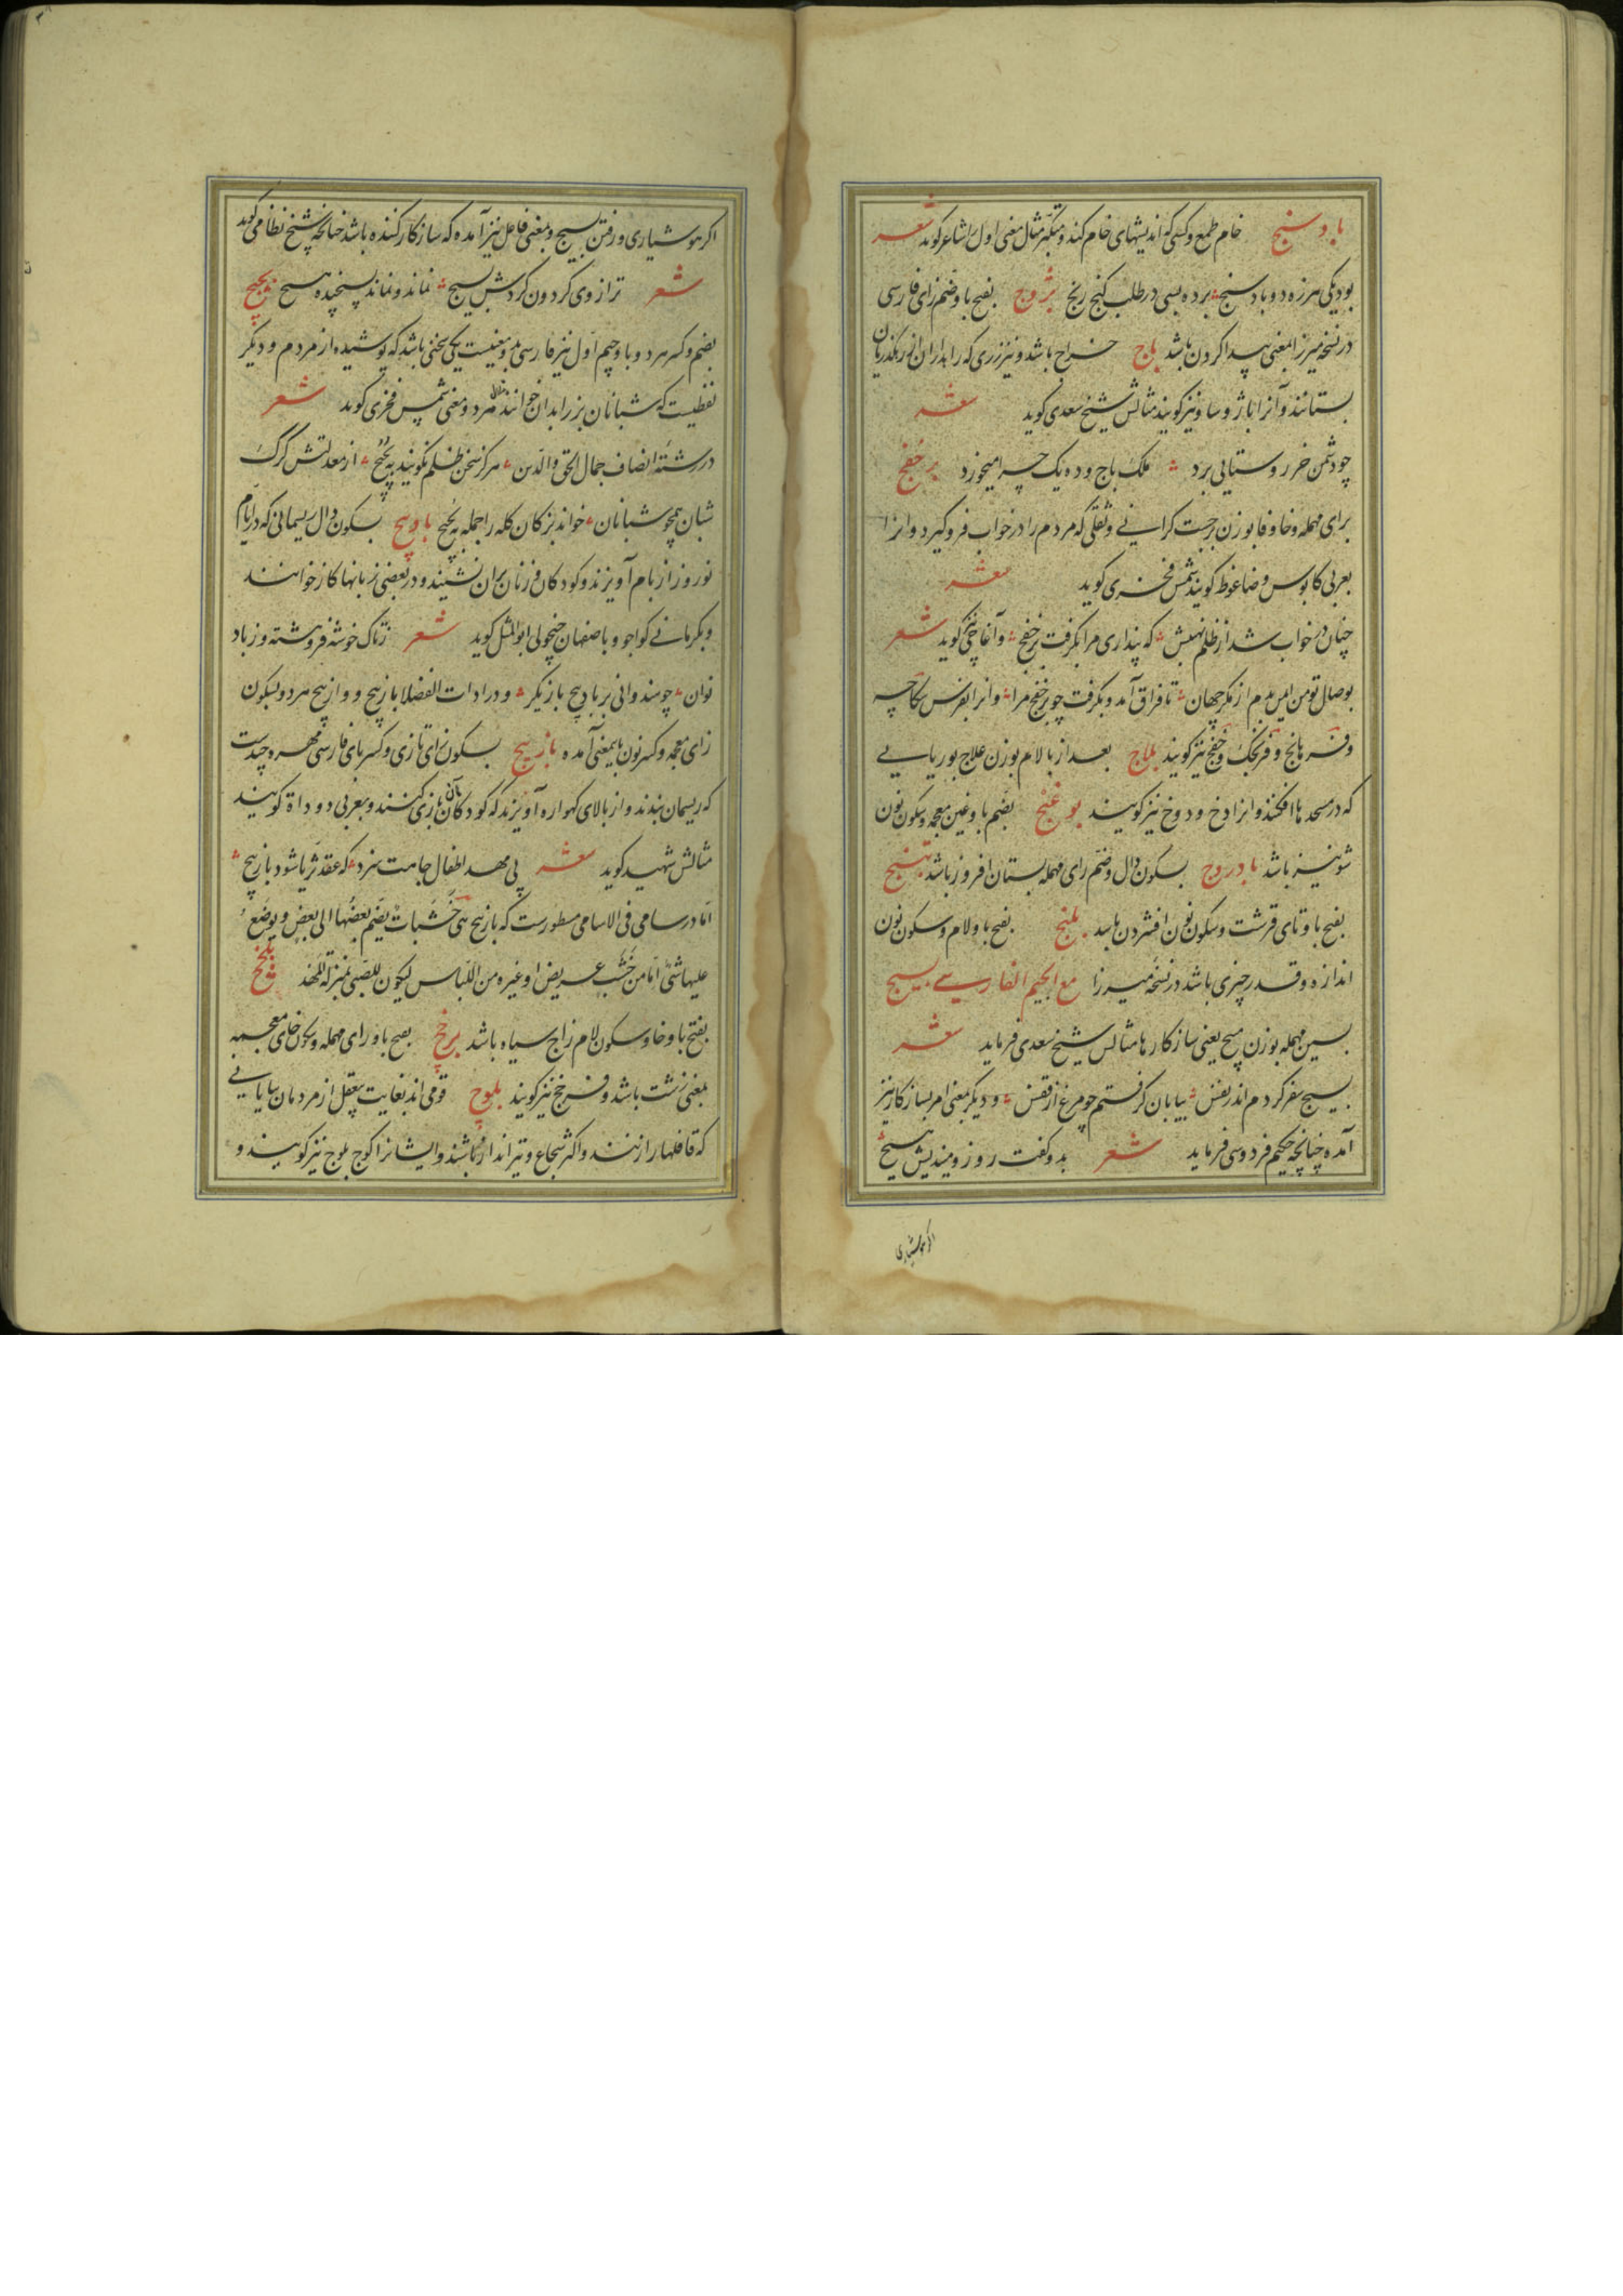 باد سنج خام طمع و کسی که اندیشهای خام کند و متکبر مثال معنی اول را شاعر کوید شعر
بود یکی هرزه دو باد سنج برده بسی در طلب کنج رنج بژوج بفتح با و ضم زای فارسی
در نسخه میرزا بمعنی پیدا کردن باشد باج خراج باشد و نیز زری که راهداران از رهکذریان
بستانند و آنرا باژ و ساو نیز کویند مثالش شیخ سعدی کوید شعر
چو دشمن خر روستایی برد ملک باج و ده یک چرا میخورد برخفج
برای مهمله و خا و فا بوزن برجست کرانی و ثقلی که مردم را در خواب فرو کیرد و انرا
بعربی کابوس و ضاغوط کویند شمس فخری کوید شعر
چنان در خواب شد از ظلم نهبش که پنداری مرا بکرفت برخفج و آغاجی نیز کوید شعر
بوصال تو من ایمن بدم از مکر جهان تا فراق آمد و بکرفت چو برخفج مرا و انرا بفرس بکاچه
و فرهانج و فرنجک و خفج نیز کویند بلاج بعد از با لام بوزن علاج بوریایی
که در مسجدها افکنند و انرا دخ و دوخ نیز کویند بوغنج بضم با و غین معجمه و سکون نون
شونیز باشد بادروج بسکون دال و ضم رای مهمله بستان افروز باشد بتنج
بفتح با و تای قرشت و سکون نون افشردن باشد بلنج بفتح با و لام و سکون نون
اندازه و قدر چیزی باشد در نسخه میرزا مع الجیم الفارسی بسیج
بسین مهمله بوزن مسیح یعنی ساز کارها مثالش شیخ سعدی فرماید شعر
بسیج سفر کردم اندر نفس بیابان کرفتم چو مرغ از قفس و دیکر بمعنی امر بساز کار نیز
آمده چنانچه حکیم فردوسی فرماید شعر بدو کفت روز و میندیش هیج
اکر هوشیاری
اکر هوشیاری و رفتن بسیج و بمعنی فاعل نیز آمده که ساز کار کننده باشد چنانچه شیخ نظامی کوید
شعر ترازوی کردون کردش بسیج نماند و نماند بسنجیده هیج بجبج
بضم و کسر هر دو با و جیم اول نیز فارسی بدو معنیست یکی سخنی باشد که پوشیده از مردم و دیکر
لفظیست که شبانان بز را بدان خوانند مثال هر دو معنی شمس فخری کوید شعر
در رشته انصاف جمال الحق والدین هرکز سخن ظلم نکویند به بجبج از معدلتش کرک
شبان همچو شبانان خواند بزکان کله را جمله به بجبج بادپیج بسکون دال ریسمانی که در ایام
نوروز از بام آویزند و کودکان و زنان بران نشینند و در بعضی زبانها کاز خوانند
و بکرمانی کواجو و باصفهان چنچولی ابوالمثل کوید شعر ز تاک خوشه فروهشته و ز باد
نوان چو هندوانی بر بادپیج بازیکر و در ادات الفضلا بازپیج و وازپیج هر دو بسکون
زای معجمه و کسر نون باینمعنی آمده بازپیج بسکون زای تازی و کسر بای فارسی مهره چندست
که ریسمان بندند و از بالای کهواره آویزند که کودکان بآن بازی کنند و بعربی دوداة کویند
مثالش شهید کوید شعر پی مهد اطفال جاهت سزد که عقد ثریا شود بازپیج
اما در سامی فی الاسامی مسطورست که بازپیج هی خشبات یضم بعضها الی بعض و یوضع
علیها شئ اما من خشب عریض او غیره من اللباس لیکون للصبی بمنزلة المهد بلخج
بفتح با و خا و سکون لام زاج سیاه باشد برخج بفتح با و رای مهمله و سکون خای معجمه
بمعنی زشت باشد و فرخج نیز کویند بلوج قومی اند بغایت بیعقل از مردمان بیابانی
که قافلها را زنند و اکثر شجاع و تیرانداز باشند و ایشانرا کوج بلوج نیز کویند و